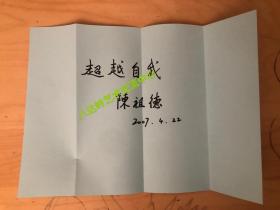 超越自我
陳祖德
2007.4.22